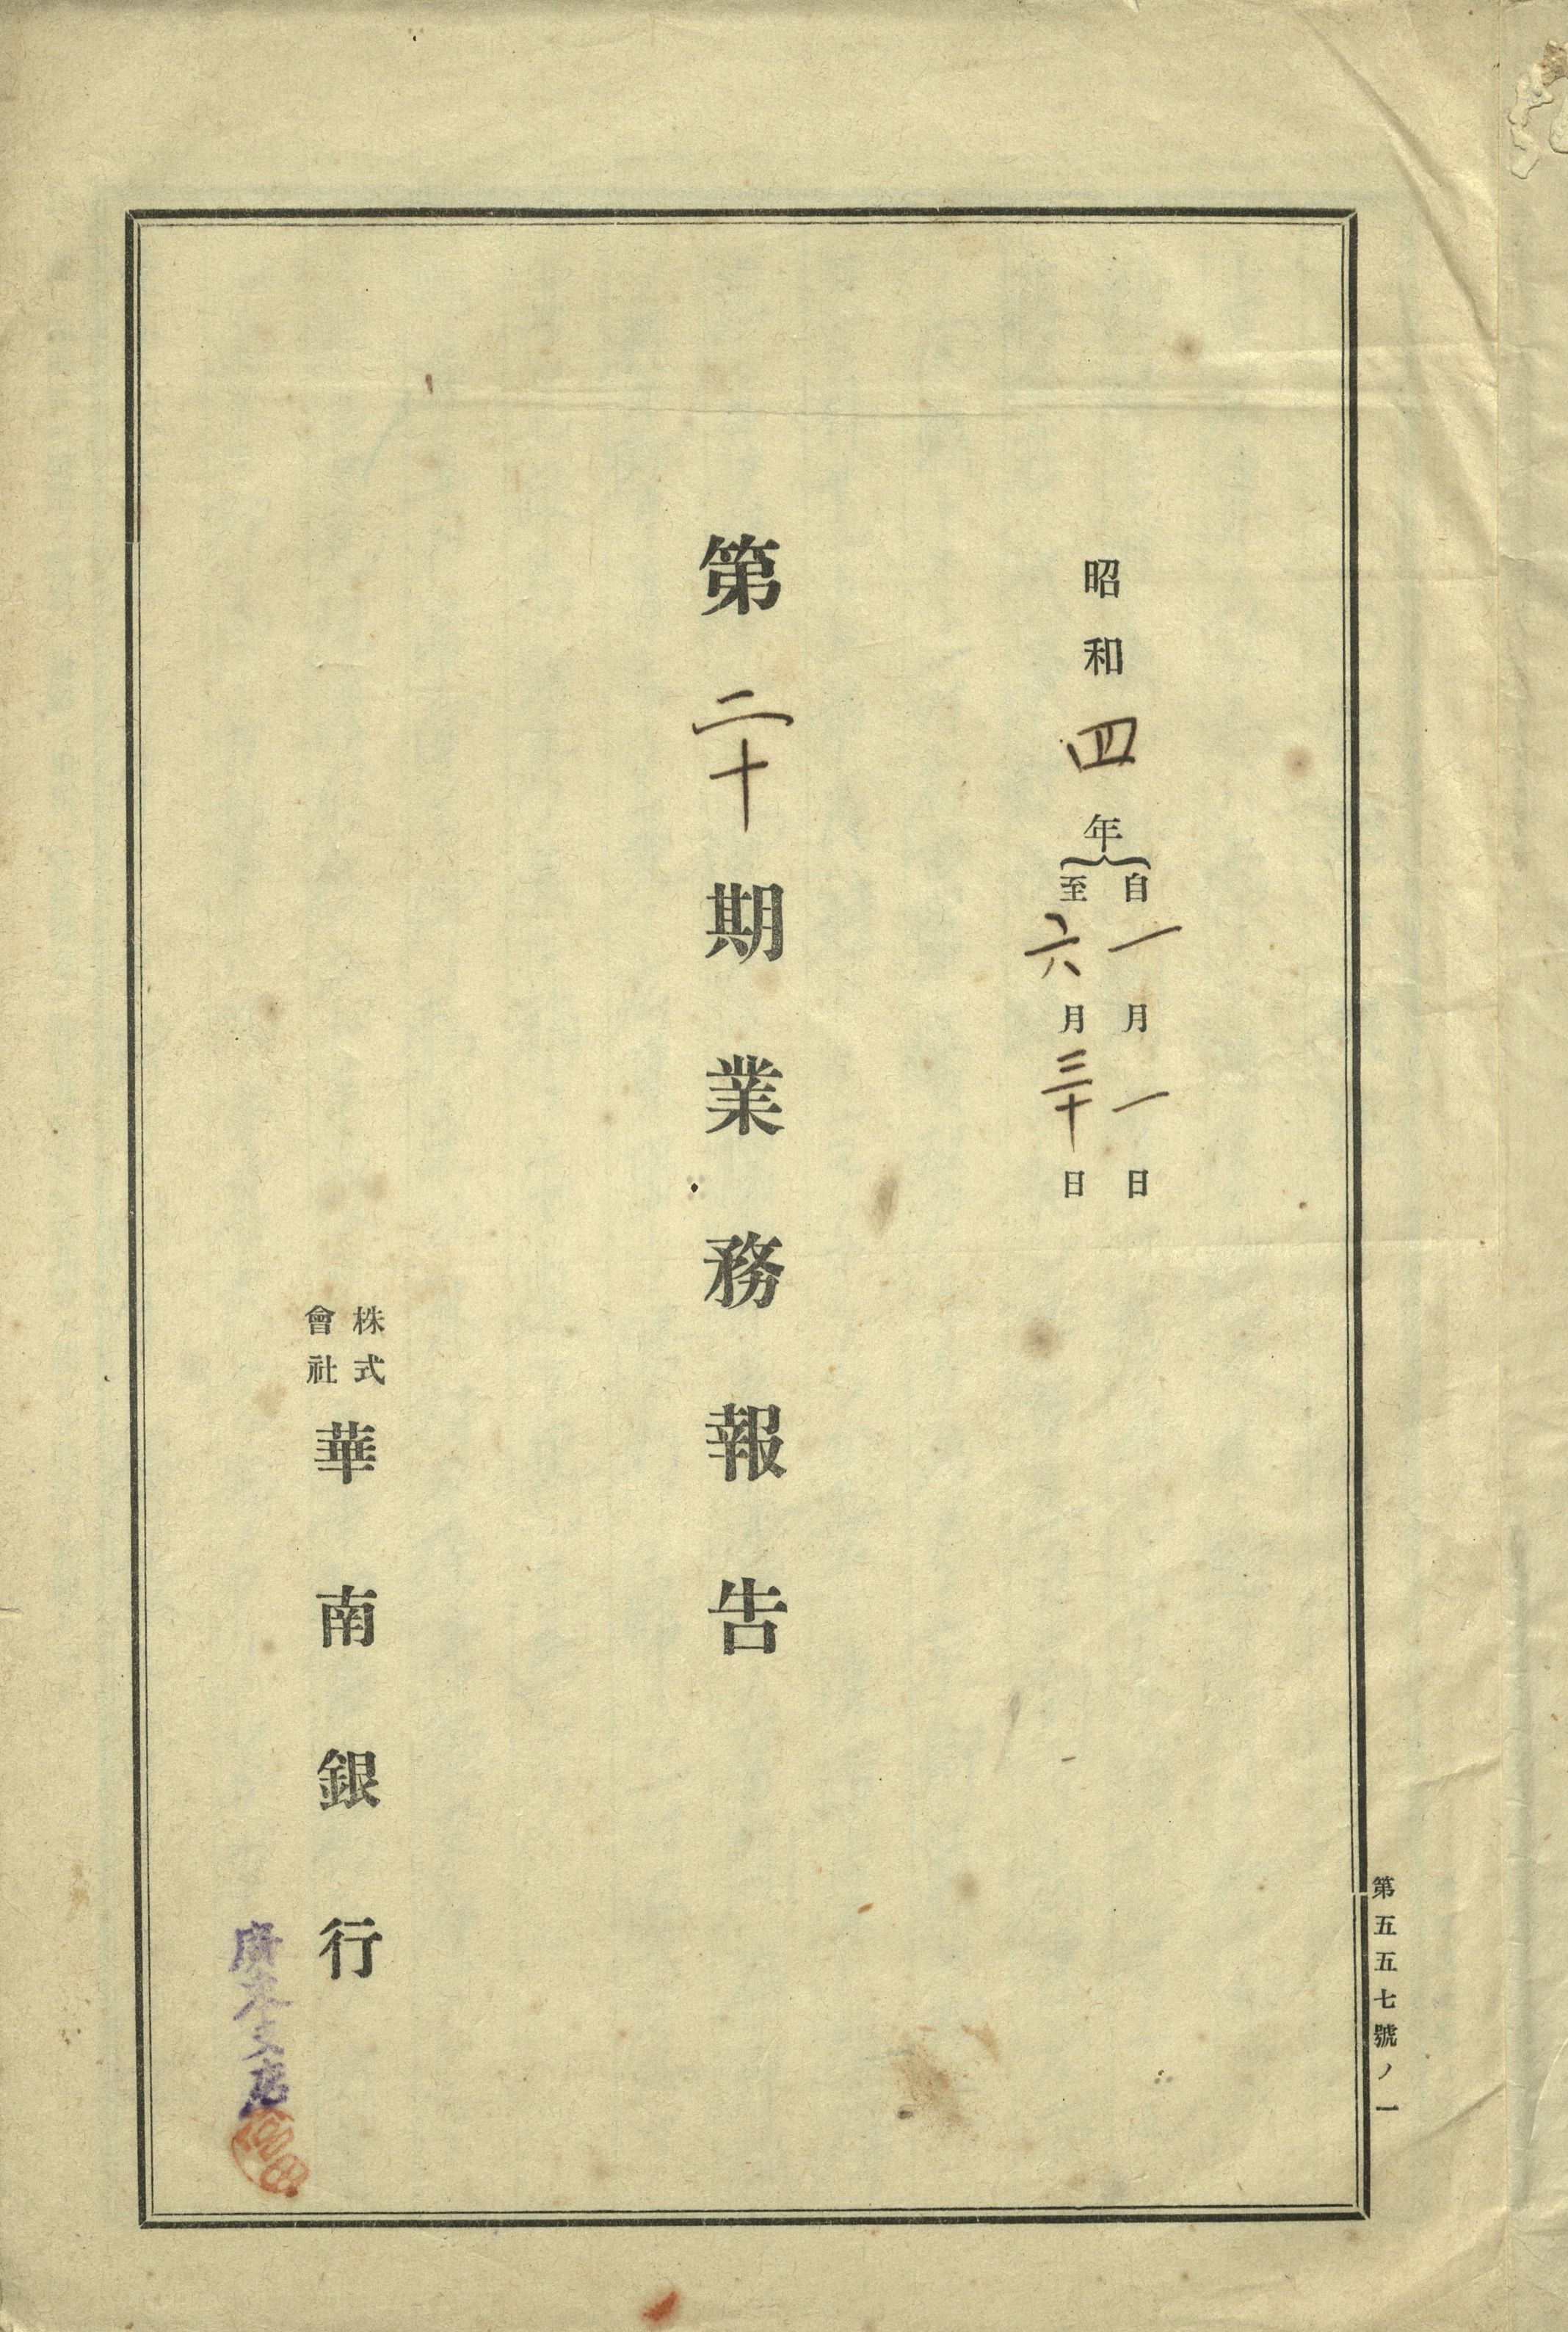 昭和四年
自一月一日
至六月三十日
第二十期業務報告
株式
會社
華南銀行
廣東支店
第五五七號ノ一